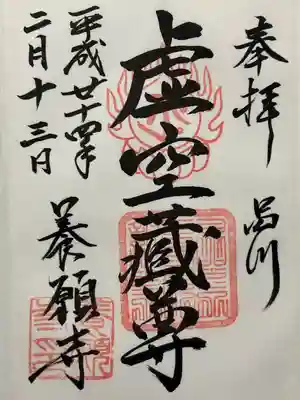 奉拝
品川
虚空蔵尊
平成廿十四年
二月十三日
養願寺